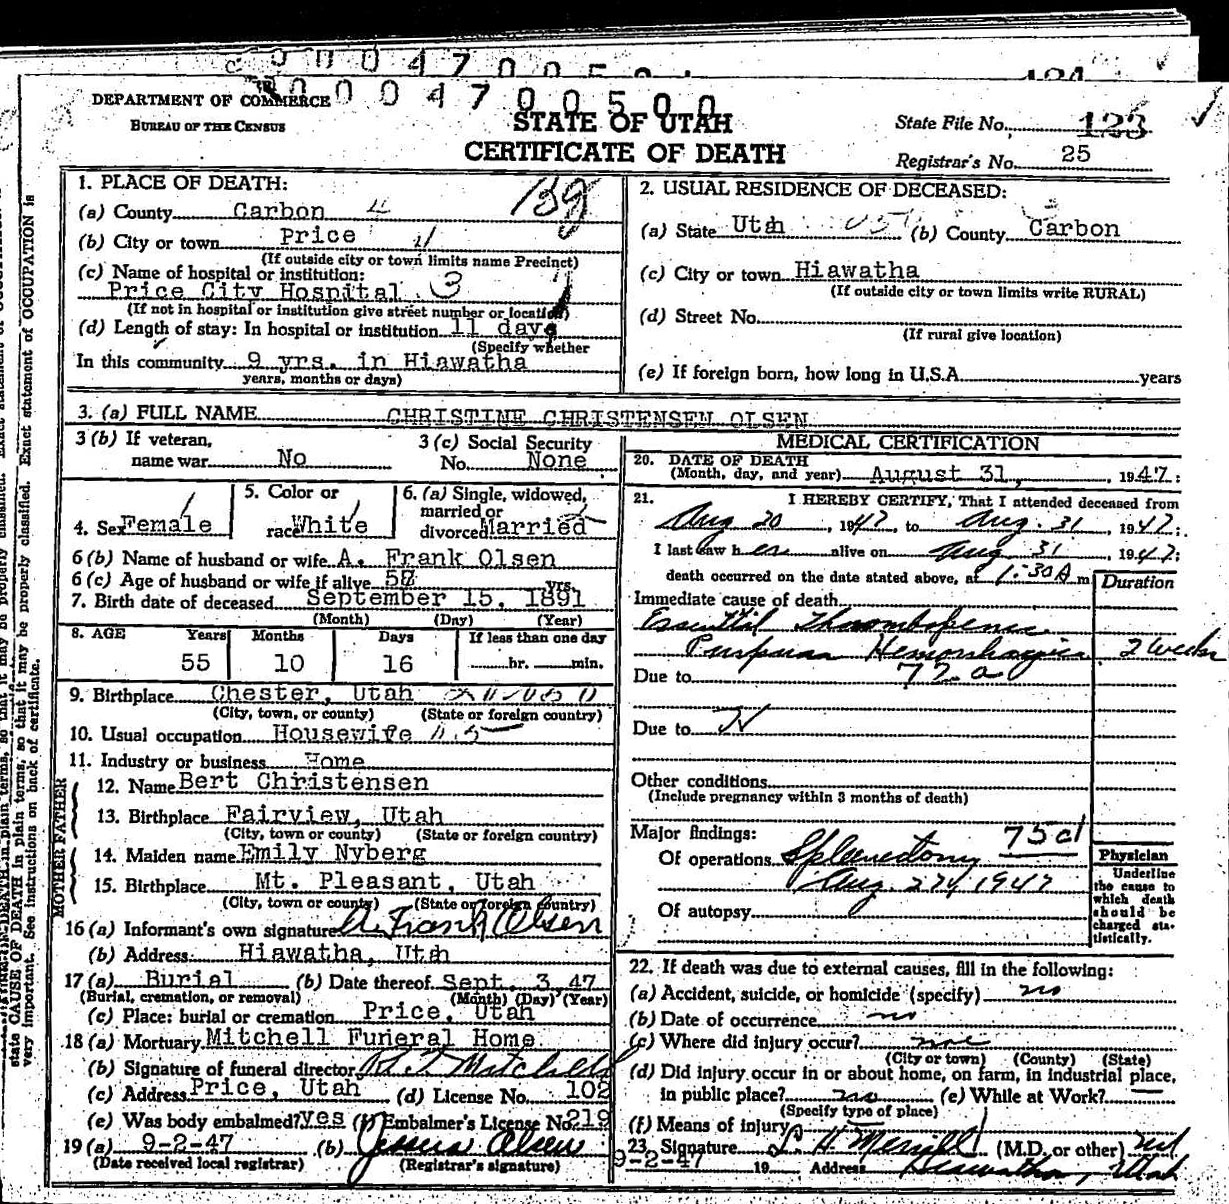 0004700500
DEPARTMENT OF COMMERCE
BUREAU OF THE CENSUS
STATE OF UTAH
CERTIFICATE OF DEATH
State File No. 123
Registrar's No. 25
1. PLACE OF DEATH:
(a) County Carbon 4
(b) City or town Price
(If outside city or town limits name Precinct)
(c) Name of hospital or institution:
Price City Hospital 3
(If not in hospital or institution give street number or location)
(d) Length of stay: In hospital or institution 11 days
(Specify whether
In this community 9 yrs. in Hiawatha
years, months or days)
2. USUAL RESIDENCE OF DECEASED:
(a) State Utah (b) County Carbon
(c) City or town Hiawatha
(If outside city or town limits write RURAL)
(d) Street No.
(If rural give location)
(e) If foreign born, how long in U.S.A. years
3. (a) FULL NAME CHRISTINE CHRISTENSEN OLSEN
3 (b) If veteran,
name war No
3 (c) Social Security
No. None
4. Sex Female
5. Color or
race White
6. (a) Single, widowed,
married or
divorced Married
6 (b) Name of husband or wife A. Frank Olsen
6 (c) Age of husband or wife if alive yrs.
7. Birth date of deceased September 15, 1891
(Month) (Day) (Year)
8. AGE Years Months Days If less than one day
55 10 16 hr. min.
9. Birthplace Chester, Utah
(City, town, or county) (State or foreign country)
10. Usual occupation Housewife
11. Industry or business Home
FATHER
12. Name Bert Christensen
13. Birthplace Fairview, Utah
(City, town or county) (State or foreign country)
MOTHER
14. Maiden name Emily Nyberg
15. Birthplace Mt. Pleasant, Utah
(City, town or county) (State or foreign country)
16 (a) Informant's own signature A. Frank Olsen
(b) Address Hiawatha, Utah
17 (a) Burial (b) Date thereof Sept. 3, 47
(Burial, cremation, or removal) (Month) (Day) (Year)
(c) Place: burial or cremation Price, Utah
18 (a) Mortuary Mitchell Funeral Home
(b) Signature of funeral director Mitchell
(c) Address Price, Utah (d) License No. 102
(e) Was body embalmed? yes (f) Embalmer's License No. 219
19 (a) 9-2-47 (b) Olsen
(Date received local registrar) (Registrar's signature)
MEDICAL CERTIFICATION
20. DATE OF DEATH
(Month, day, and year) August 31, 1947
21. I HEREBY CERTIFY, That I attended deceased from
Aug 20, 1947, to Aug. 31 1947;
I last saw her alive on Aug 31, 1947;
death occurred on the date stated above, at 1:30A m
Duration
Immediate cause of death
Essential Thrombopenic
Purpura Hemorrhagica 2 weeks
Due to 72.a
Due to
Other conditions
(Include pregnancy within 3 months of death)
Major findings: 75d
Of operations Splenectomy
Aug. 27th 1947
Of autopsy
Physician
Underline
the cause to
which death
should be
charged sta-
tistically.
22. If death was due to external causes, fill in the following:
(a) Accident, suicide, or homicide (specify) no
(b) Date of occurrence no
(c) Where did injury occur?
(City or town) (County) (State)
(d) Did injury occur in or about home, on farm, in industrial place,
in public place? no (e) While at Work?
(Specify type of place)
(f) Means of injury
23. Signature H. Merrill (M.D. or other) md
9-2-47 19 Address Hiawatha, Utah